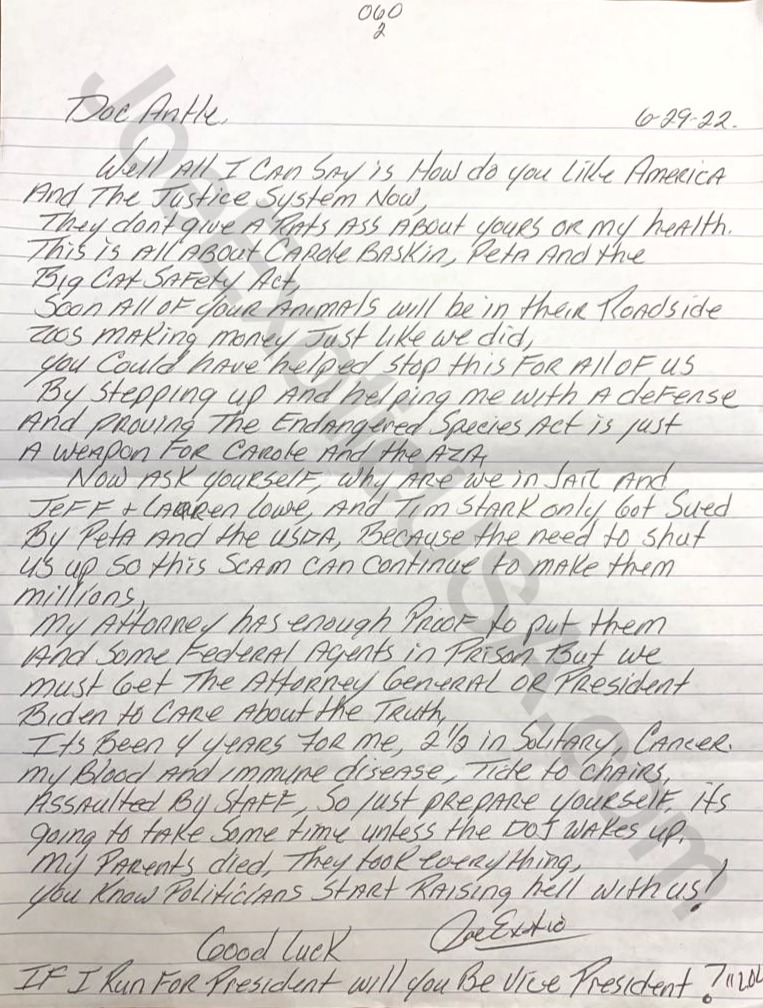 060
2
Doc Antle,
6-29-22.
Well All I Can Say is How do you like America
And The Justice System Now,
They don't give A Rats Ass About yours or my health.
This is All About Carole Baskin, Peta And the
Big Cat Safety Act,
Soon All of your Animals will be in their Roadside
Zoos making money Just like we did,
you Could have helped stop this For All of us
By stepping up And helping me with A defense
And proving The Endangered Species Act is just
A weapon For Carole And the AZA,
Now Ask yourself, why Are we in Jail And
Jeff + Lauren Lowe, And Tim Stark only Got Sued
By Peta And the USDA, Because the need to shut
us up so this Scam can continue to make them
millions,
My Attorney has enough Proof to put them
And Some Federal Agents in Prison But we
must Get The Attorney General or President
Biden to Care About the Truth,
Its Been 4 years For me, 2 1/2 in Solitary, Cancer.
my Blood And immune disease, Tide to chairs,
Assaulted By Staff, So just prepare yourself, its
going to take some time unless the DOJ wakes up.
My Parents died, They took everything,
you know Politicians Start Raising hell with us!
Good luck Joe Exotic
If I Run For President will you Be Vice President?
JoeExoticUSA.com